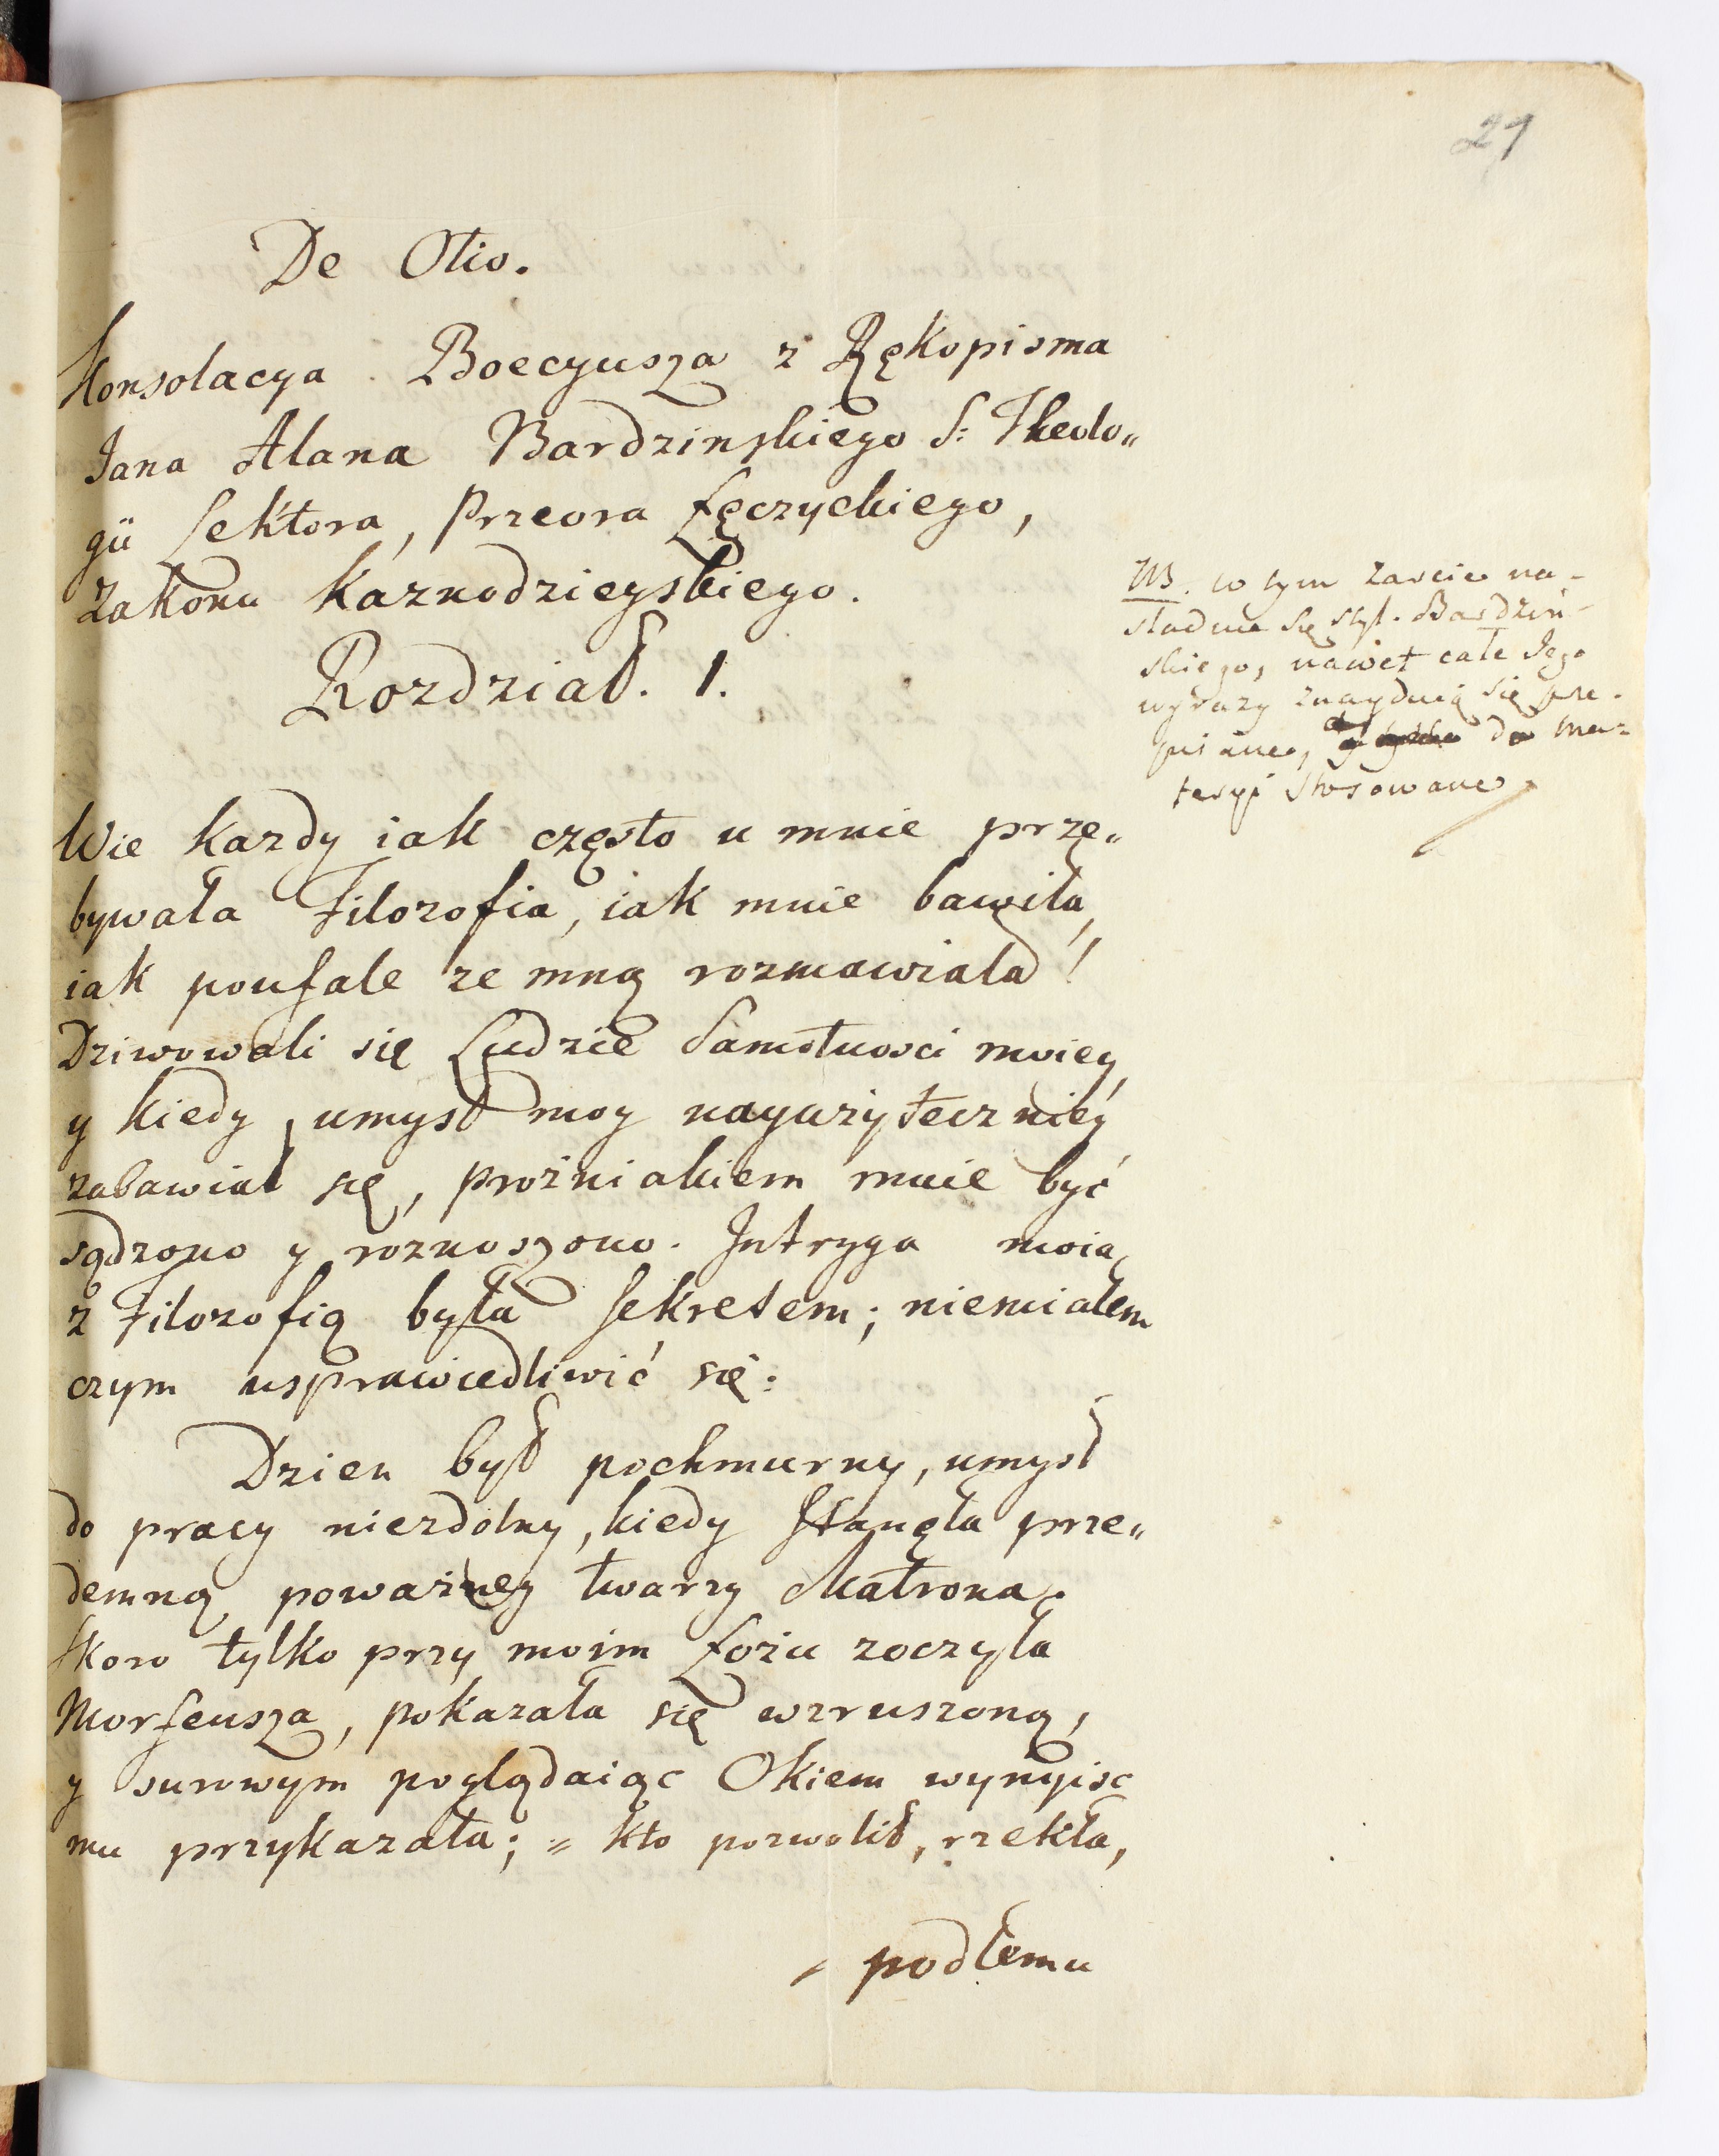 21
De Otio.
Konsolacya Boecyusza z Rękopisma
Jana Alana Bardzinskiego S: Theolo„
gii Lektora, Przeora Łęczyckiego,
Zakonu Kaznodzieyskiego.
Rozdział. 1.
NB. w tym żarcie na-
sladuie się styl. Bardziń-
skiego, nawet całe Jego
wyrazy znayduią się prze-
pisane, do ma-
teryi stosowane
Wie kazdy iak często u mnie prze„
bywała Filozofia, iak mnie bawiła,
iak poufale ze mną rozmawiała!
Dziwowali się Ludzie Samotnosci moiey,
y kiedy umysł moy nayużyteczniey
zabawiał się, prożniakiem mnie być
sądzono y roznoszono. Intryga moia
z Filozofią była sekretem; niemiałem
czym usprawiedliwić się:
Dzien był pochmurny, umysł
do pracy niezdolny, kiedy stanęła prze„
demną poważney twarzy Matrona.
skoro tylko przy moim Łożu zoczyła
Morfeusza, pokazała się wzruszoną,
y surowym poglądaiąc Okiem wynyisc
mu przykazała; „ kto pozwolił, rzekła,
podłemu